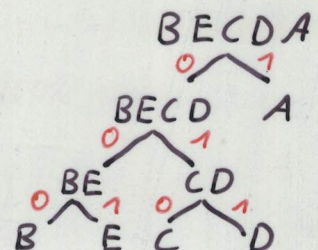 BECDA
0 1
BECD A
0 1
BE CD
0 1 0 1
B E C D